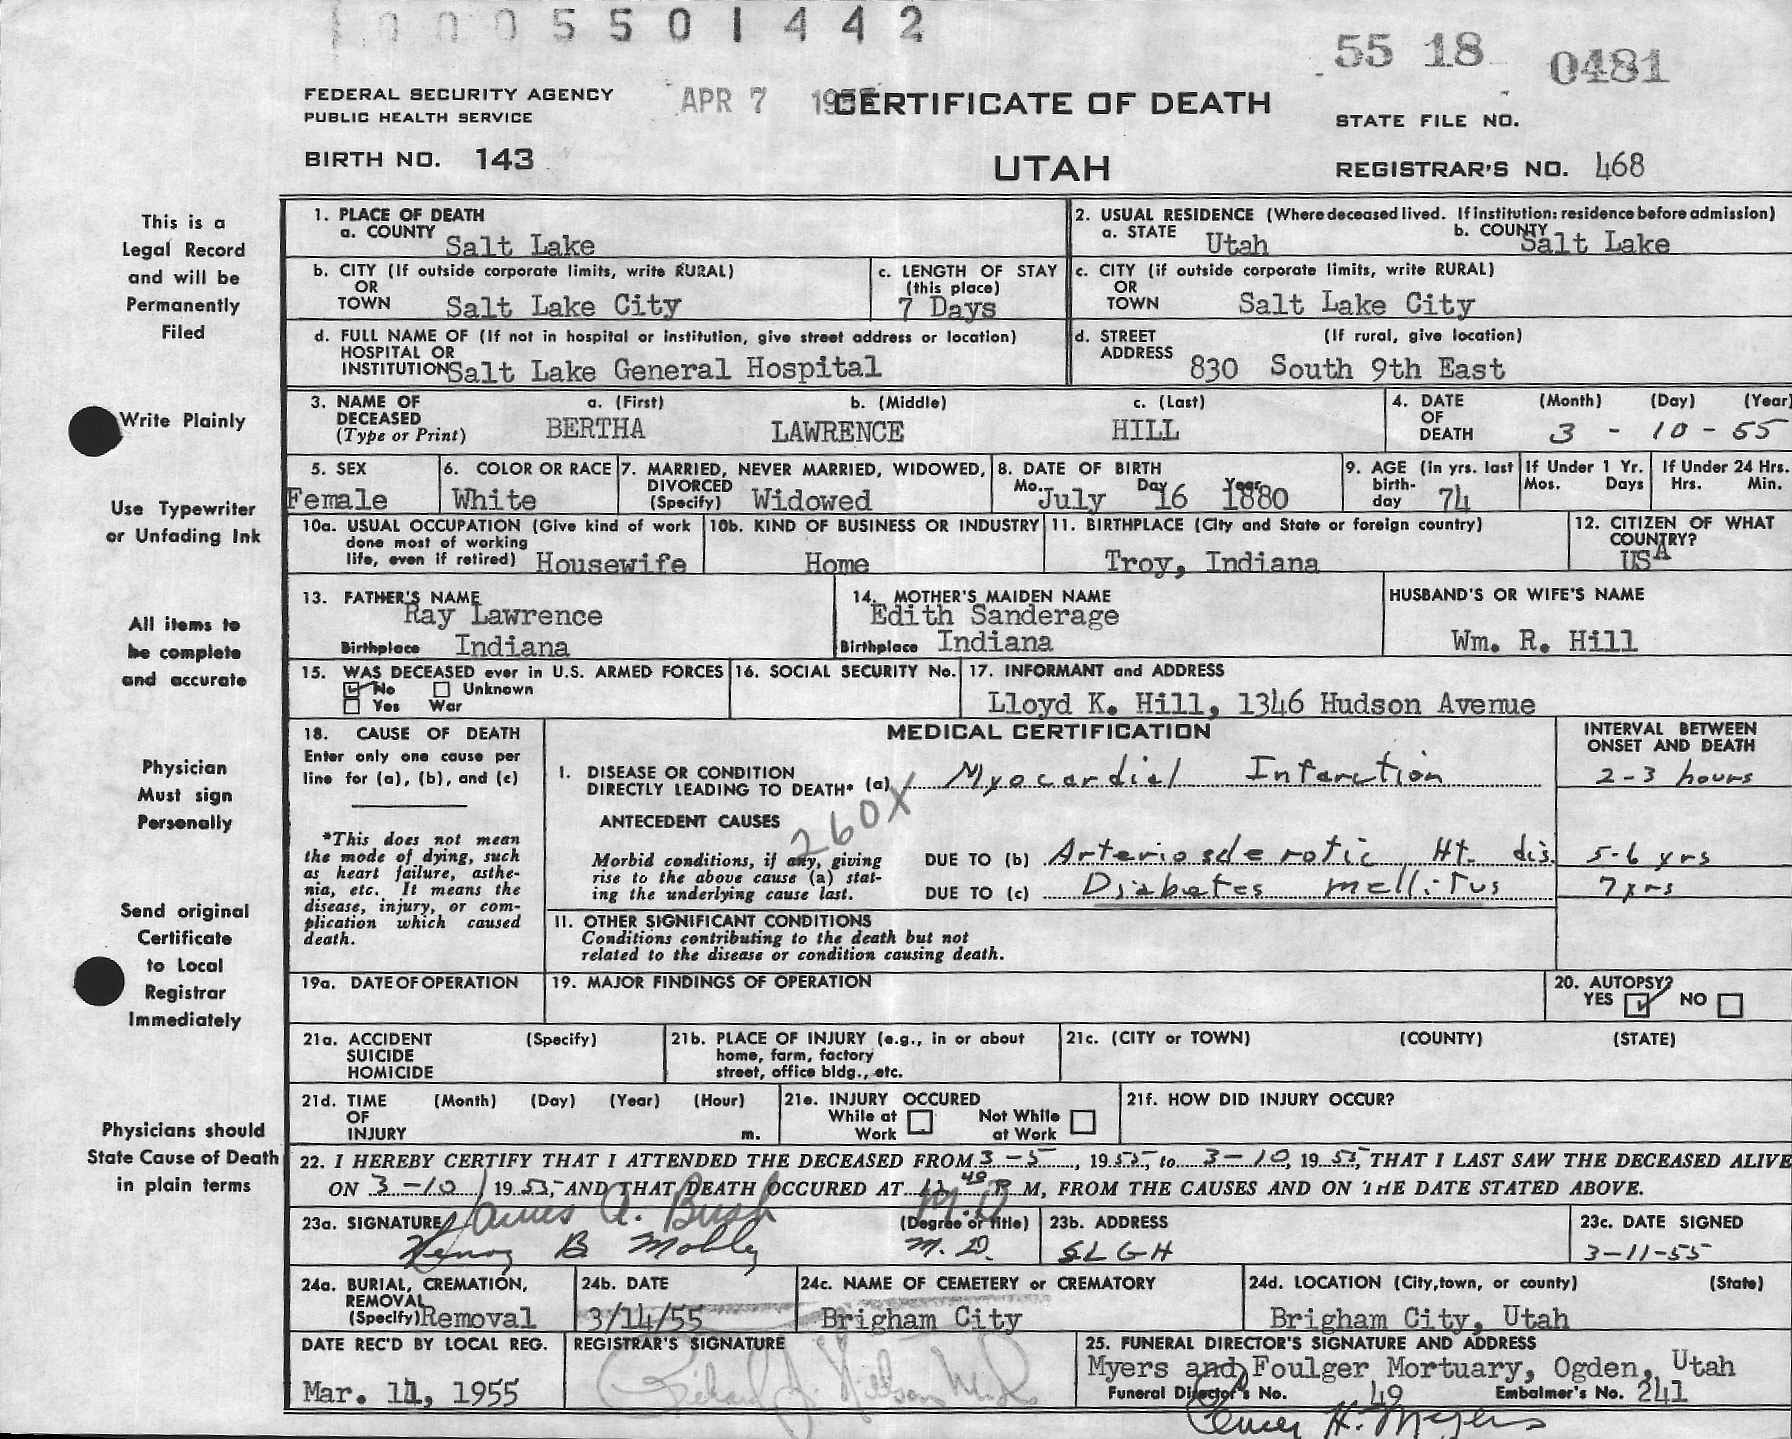 5501442
55 18 0481
FEDERAL SECURITY AGENCY
PUBLIC HEALTH SERVICE
APR 7
CERTIFICATE OF DEATH
STATE FILE NO.
BIRTH NO. 143
UTAH
REGISTRAR'S NO. 468
This is a
Legal Record
and will be
Permanently
Filed
Write Plainly
Use Typewriter
or Unfading Ink
All items to
be complete
and accurate
Physician
Must sign
Personally
Send original
Certificate
to Local
Registrar
Immediately
Physicians should
State Cause of Death
in plain terms
1. PLACE OF DEATH
a. COUNTY Salt Lake
2. USUAL RESIDENCE (Where deceased lived. If institution: residence before admission)
a. STATE Utah b. COUNTY Salt Lake
b. CITY (If outside corporate limits, write RURAL)
OR
TOWN Salt Lake City
c. LENGTH OF STAY
(this place)
7 Days
c. CITY (if outside corporate limits, write RURAL)
OR
TOWN Salt Lake City
d. FULL NAME OF (If not in hospital or institution, give street address or location)
HOSPITAL OR
INSTITUTION Salt Lake General Hospital
d. STREET (If rural, give location)
ADDRESS 830 South 9th East
3. NAME OF
DECEASED
(Type or Print)
a. (First) b. (Middle) c. (Last)
BERTHA LAWRENCE HILL
4. DATE (Month) (Day) (Year)
OF
DEATH 3 - 10 - 55
5. SEX
Female
6. COLOR OR RACE
White
7. MARRIED, NEVER MARRIED, WIDOWED,
DIVORCED
(Specify) Widowed
8. DATE OF BIRTH
Mo. Day Year
July 16 1880
9. AGE (In yrs. last
birth-
day 74
If Under 1 Yr.
Mos. Days
If Under 24 Hrs.
Hrs. Min.
10a. USUAL OCCUPATION (Give kind of work
done most of working
life, even if retired) Housewife
10b. KIND OF BUSINESS OR INDUSTRY
Home
11. BIRTHPLACE (City and State or foreign country)
Troy, Indiana
12. CITIZEN OF WHAT
COUNTRY?
USA
13. FATHER'S NAME
Ray Lawrence
Birthplace Indiana
14. MOTHER'S MAIDEN NAME
Edith Sanderage
Birthplace Indiana
HUSBAND'S OR WIFE'S NAME
Wm. R. Hill
15. WAS DECEASED ever in U.S. ARMED FORCES
No Unknown
Yes War
16. SOCIAL SECURITY No.
17. INFORMANT and ADDRESS
Lloyd K. Hill, 1346 Hudson Avenue
18. CAUSE OF DEATH
Enter only one cause per
line for (a), (b), and (c)
*This does not mean
the mode of dying, such
as heart failure, asthe-
nia, etc. It means the
disease, injury, or com-
plication which caused
death.
MEDICAL CERTIFICATION
INTERVAL BETWEEN
ONSET AND DEATH
I. DISEASE OR CONDITION
DIRECTLY LEADING TO DEATH* (a) Myocardial Infarction 2-3 hours
ANTECEDENT CAUSES
260X
Morbid conditions, if any, giving
rise to the above cause (a) stat-
ing the underlying cause last.
DUE TO (b) Arteriosclerotic Ht. dis. 5-6 yrs
DUE TO (c) Diabetes mellitus 7 yrs
II. OTHER SIGNIFICANT CONDITIONS
Conditions contributing to the death but not
related to the disease or condition causing death.
19a. DATE OF OPERATION
19. MAJOR FINDINGS OF OPERATION
20. AUTOPSY?
YES NO
21a. ACCIDENT (Specify)
SUICIDE
HOMICIDE
21b. PLACE OF INJURY (e.g., in or about
home, farm, factory
street, office bldg., etc.
21c. (CITY or TOWN) (COUNTY) (STATE)
21d. TIME (Month) (Day) (Year) (Hour)
OF
INJURY m.
21e. INJURY OCCURED
While at Not While
Work at Work
21f. HOW DID INJURY OCCUR?
22. I HEREBY CERTIFY THAT I ATTENDED THE DECEASED FROM 3-5, 1955, to 3-10, 1955, THAT I LAST SAW THE DECEASED ALIVE
ON 3-10, 1955, AND THAT DEATH OCCURED AT M, FROM THE CAUSES AND ON THE DATE STATED ABOVE.
James A. Bush M.D
23a. SIGNATURE (Degree or title)
Henry B. Mobley M.D.
23b. ADDRESS
SLGH
23c. DATE SIGNED
3-11-55
24a. BURIAL, CREMATION,
REMOVAL
(Specify) Removal
24b. DATE
3/14/55
24c. NAME OF CEMETERY or CREMATORY
Brigham City
24d. LOCATION (City, town, or county) (State)
Brigham City, Utah
DATE REC'D BY LOCAL REG.
Mar. 11, 1955
REGISTRAR'S SIGNATURE
25. FUNERAL DIRECTOR'S SIGNATURE AND ADDRESS
Myers and Foulger Mortuary, Ogden, Utah
Funeral Director's No. 49 Embalmer's No. 241
H. Myers